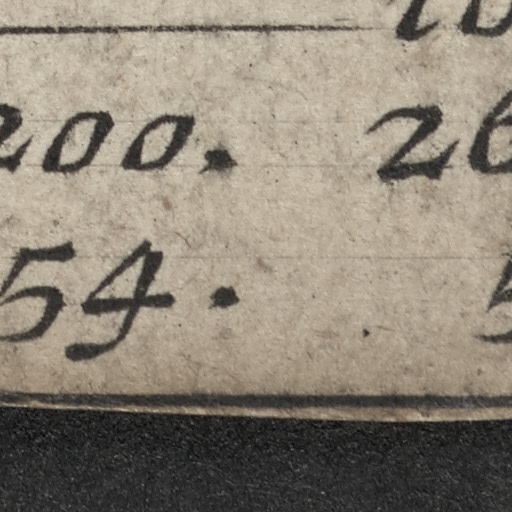 200. 26
54.